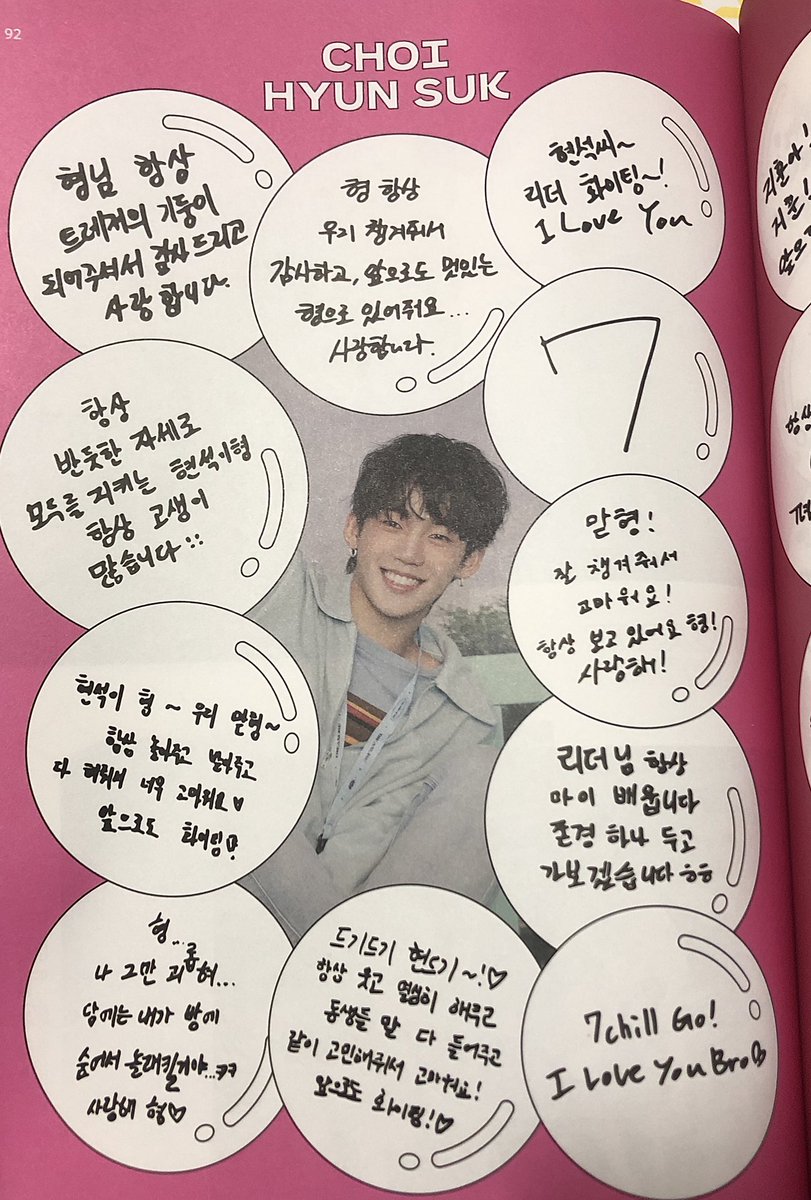 92
CHOI
HYUN SUK
형님 항상
트레저의 기둥이
되어주셔서 감사드리고
사랑합니다.
형 항상
우리 챙겨줘서
감사하고, 앞으로도 멋있는
형으로 있어줘요...
사랑합니다.
현석씨~
리더 화이팅~!
I Love You
7
항상
반듯한 자세로
모두를 지키는 현석이형
항상 고생이
많습니다
맏형!
잘 챙겨줘서
고마워요!
항상 보고있어요 형!
사랑해!
현석이 형~ 우리 맏형~
항상 놀아주고
다 해줘서 너무 고마워요♡
앞으로도 화이팅!
리더님 항상
마이 배웁니다
존경 하나 두고
가보겠습니다 ㅎㅎ
형...
나 그만 괴롭혀...
담에는 내가 방에
숨어서 놀래킬거야...ㅋㅋ
사랑해 형♡
드기드기 현드기~!♡
항상 웃고 열심히 해주고
동생들 말 다 들어주고
같이 고민해줘서 고마워요!
앞으로도 화이팅!♡
7chill Go!
I Love You Bro
지훈아!